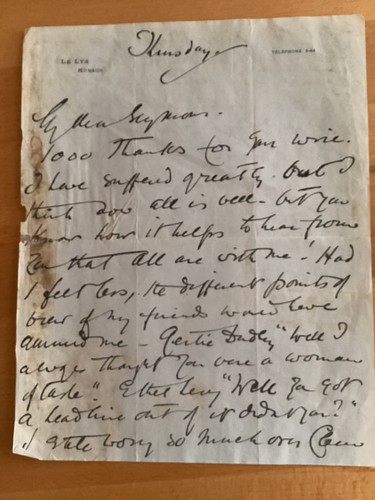 Thursday
LE LYS
TELEPHONE
My dear Seymour.
1000 Thanks for your wire.
I have suffered greatly. but I
think now all is well – but you
know how it helps to hear from
you that all are with me! Had
I felt less, the different points of
view of my friends would have
amused me – Gertie Dudley "Well I
always thought you were a woman
of taste". Ethel Levy "Well you got
a headline out of it didn't you?"
"I hate worry so much over